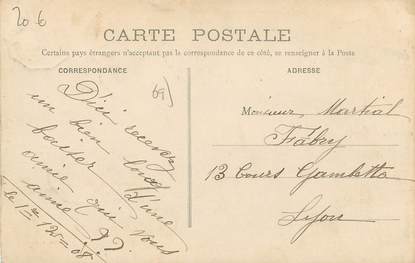 20 6
CARTE POSTALE
Certains pays étrangers n'acceptant pas la correspondance de ce côté, se renseigner à la Poste
CORRESPONDANCE
ADRESSE
69)
D'ici recevez
un bien long
baiser d'une
amie qui vous
aime
le 1er 12 = 08
Monsieur Martial
Fabry
13 Cours Gambetta
Lyon